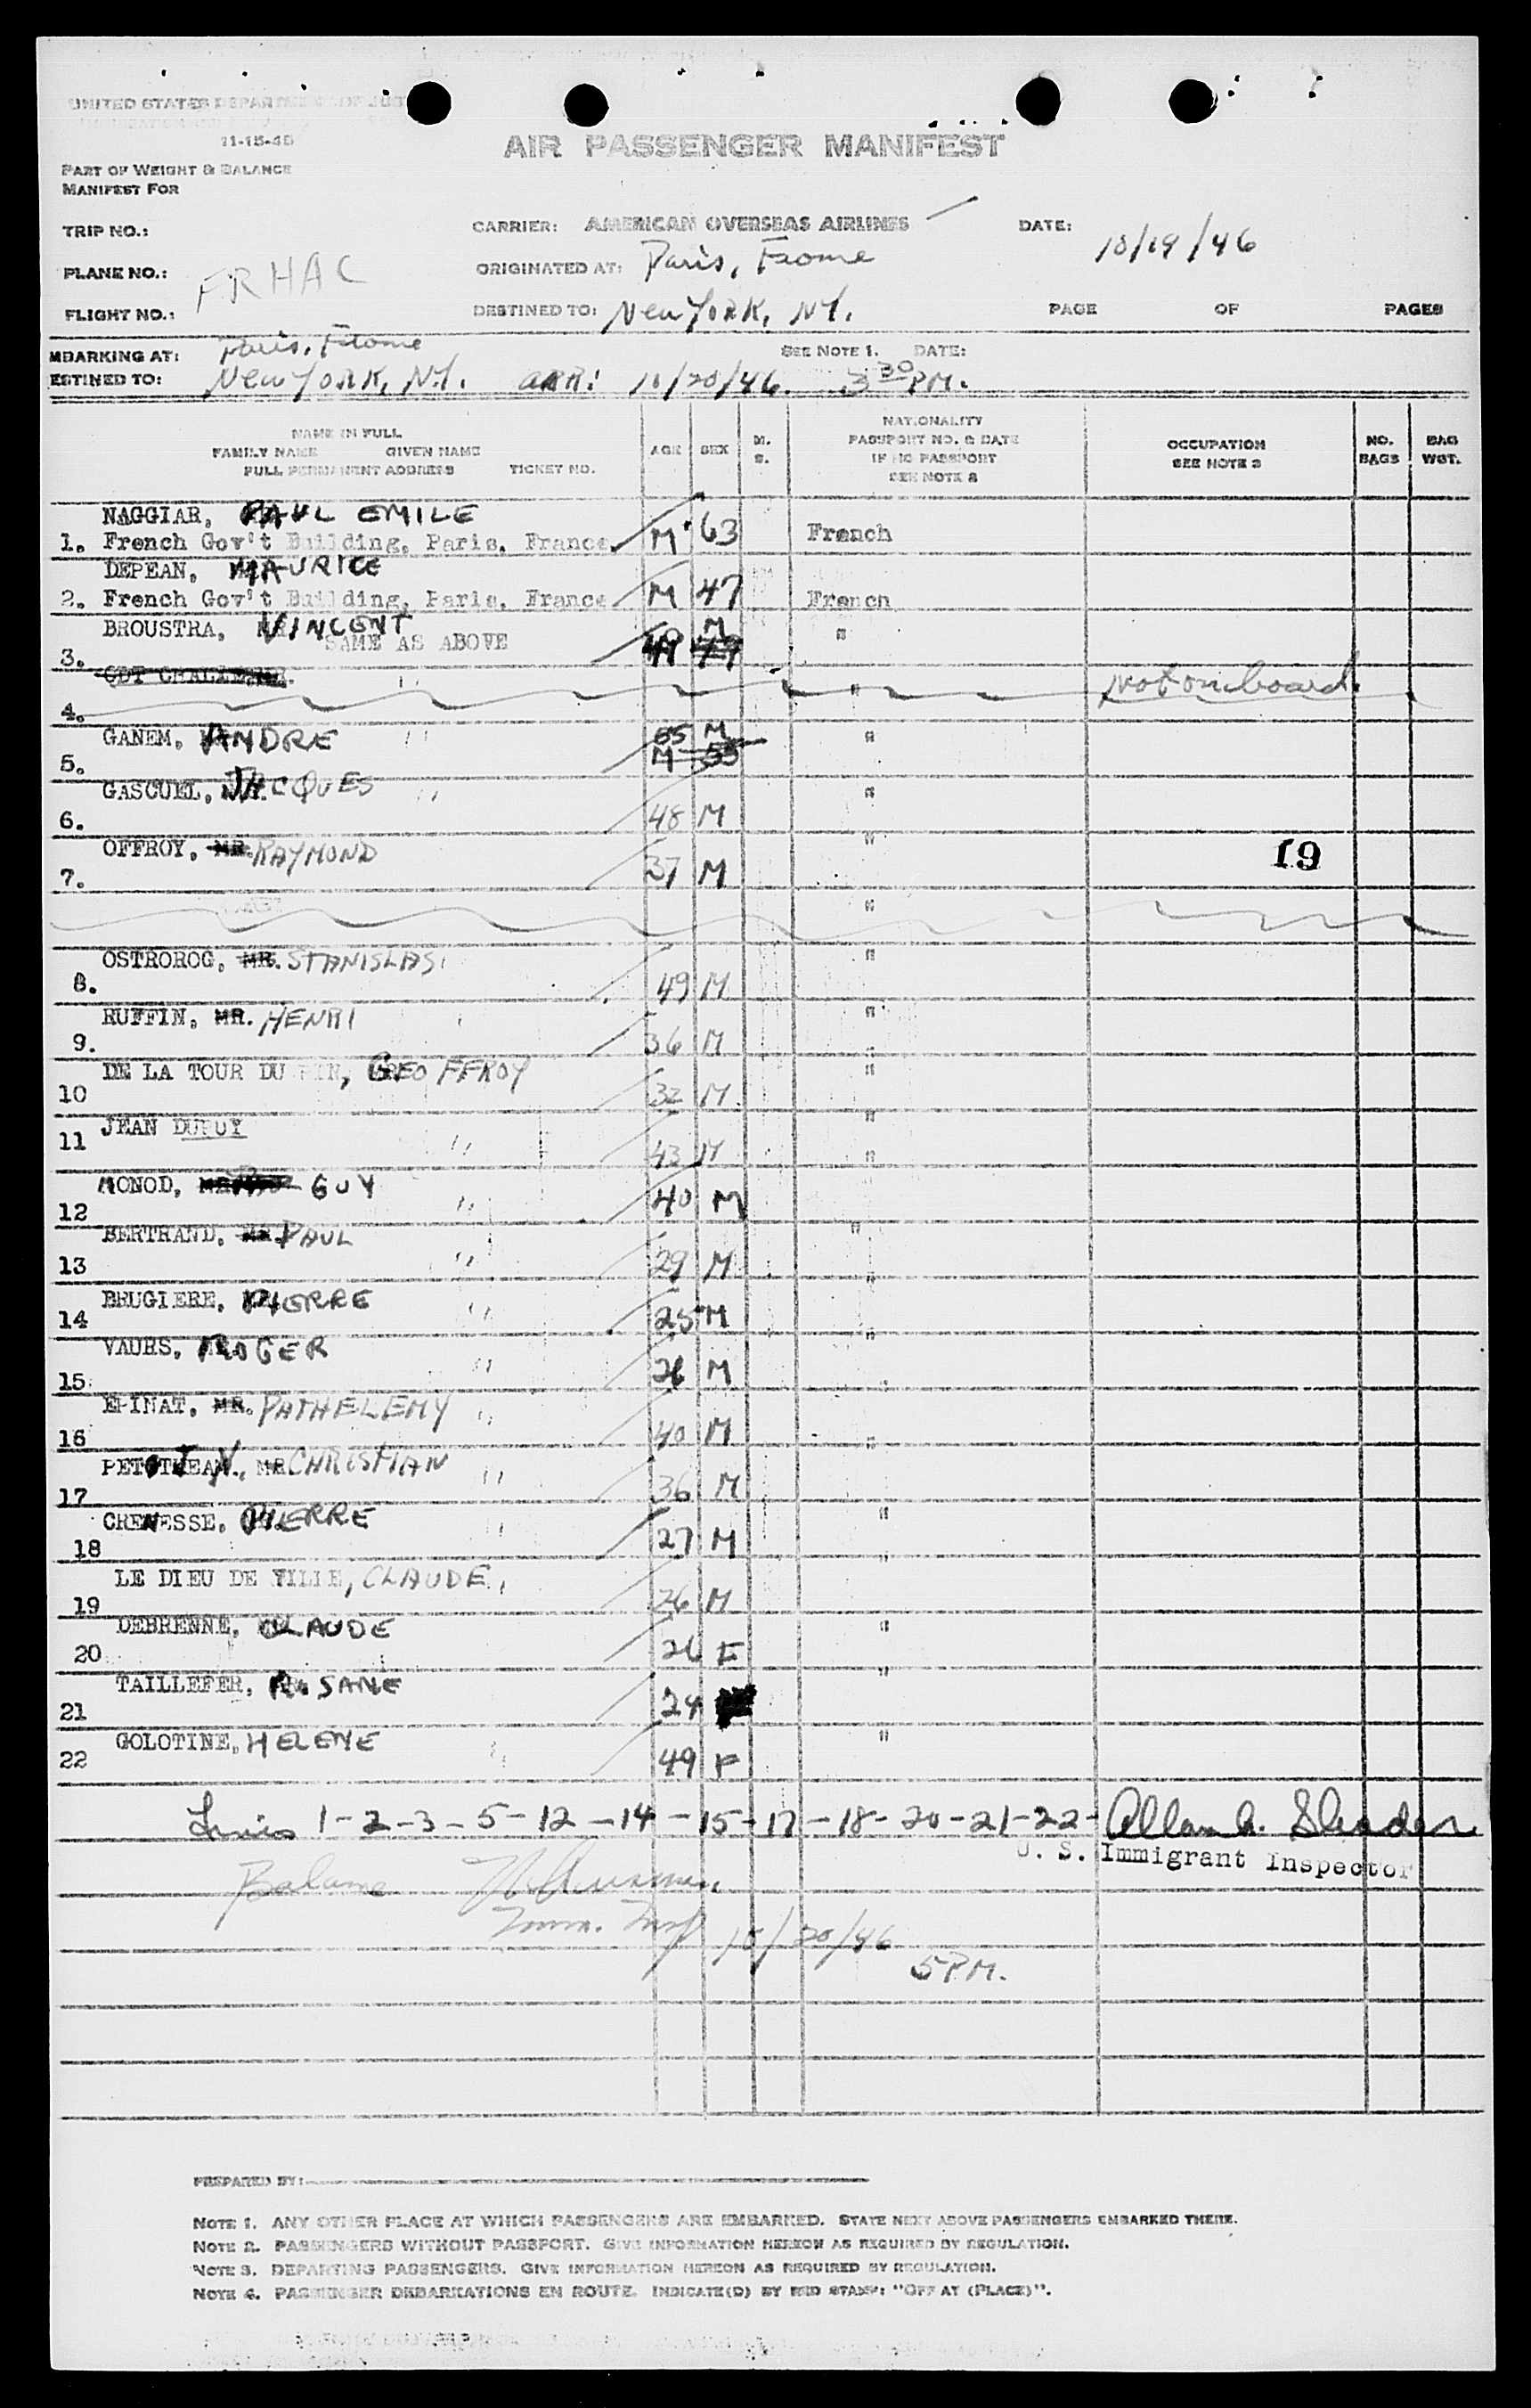 UNITED STATES DEPARTMENT OF JUST
11-15-45
AIR PASSENGER MANIFEST
PART OF WEIGHT & BALANCE
MANIFEST FOR
TRIP NO.: CARRIER: AMERICAN OVERSEAS AIRLINES DATE: 10/19/46
PLANE NO.: FRHAC ORIGINATED AT: Paris, France
FLIGHT NO.: DESTINED TO: New York, NY. PAGE OF PAGES
MBARKING AT: Paris, France SEE NOTE 1. DATE:
ESTINED TO: New York, NY. ARR: 10/20/46. 3 30 PM.
NAME IN FULL
FAMILY NAME GIVEN NAME
FULL PERMANENT ADDRESS TICKET NO.
AGE SEX M. S.
NATIONALITY
PASSPORT NO. & DATE
IF NO PASSPORT
SEE NOTE 2
OCCUPATION
SEE NOTE 3
NO. BAGS
BAG WGT.
NAGGIAR, PAUL EMILE
1. French Gov't Building, Paris, France M 63 French
DEPEAN, MAURICE
2. French Gov't Building, Paris, France M 47 French
BROUSTRA, VINCENT
3. SAME AS ABOVE 49 M "
4. CDT CHALLE " " Not on board.
5. GANEM, ANDRE " 55 M "
6. GASCUEL, JACQUES " 48 M "
7. OFFROY, MR. RAYMOND 37 M "
19
"
8. OSTROROG, MR. STANISLAS 49 M "
9. RUFFIN, MR. HENRI 36 M "
10 DE LA TOUR DU PIN, GEOFFROY 32 M "
11 JEAN DUPUY " 43 M "
12 MONOD, GUY " 40 M "
13 BERTRAND, MR. PAUL " 29 M "
14 BRUGIERE, PIERRE " 25 M "
15 VAURS, ROGER " 26 M "
16 EPINAT, MR. PATHELEMY " 40 M "
17 PETITJEAN, MR CHRISTIAN " 36 M "
18 CRENESSE, PIERRE " 27 M "
19 LE DIEU DE VILLE, CLAUDE, 26 M "
20 DEBRENNE, CLAUDE 26 F "
21 TAILLEFER, ROSANE 24 "
22 GOLOTINE, HELENE 49 F "
1-2-3-5-12-14-15-17-18-20-21-22- Allan A.
U. S. Immigrant Inspector
Balance
Imm. Insp 10/20/46
5 PM.
PREPARED BY:
NOTE 1. ANY OTHER PLACE AT WHICH PASSENGERS ARE EMBARKED. STATE NEXT ABOVE PASSENGERS EMBARKED THERE.
NOTE 2. PASSENGERS WITHOUT PASSPORT. GIVE INFORMATION HEREON AS REQUIRED BY REGULATION.
NOTE 3. DEPARTING PASSENGERS. GIVE INFORMATION HEREON AS REQUIRED BY REGULATION.
NOTE 4. PASSENGER DEBARKATIONS EN ROUTE. INDICATE(D) BY RED STAMP: "OFF AT (PLACE)".